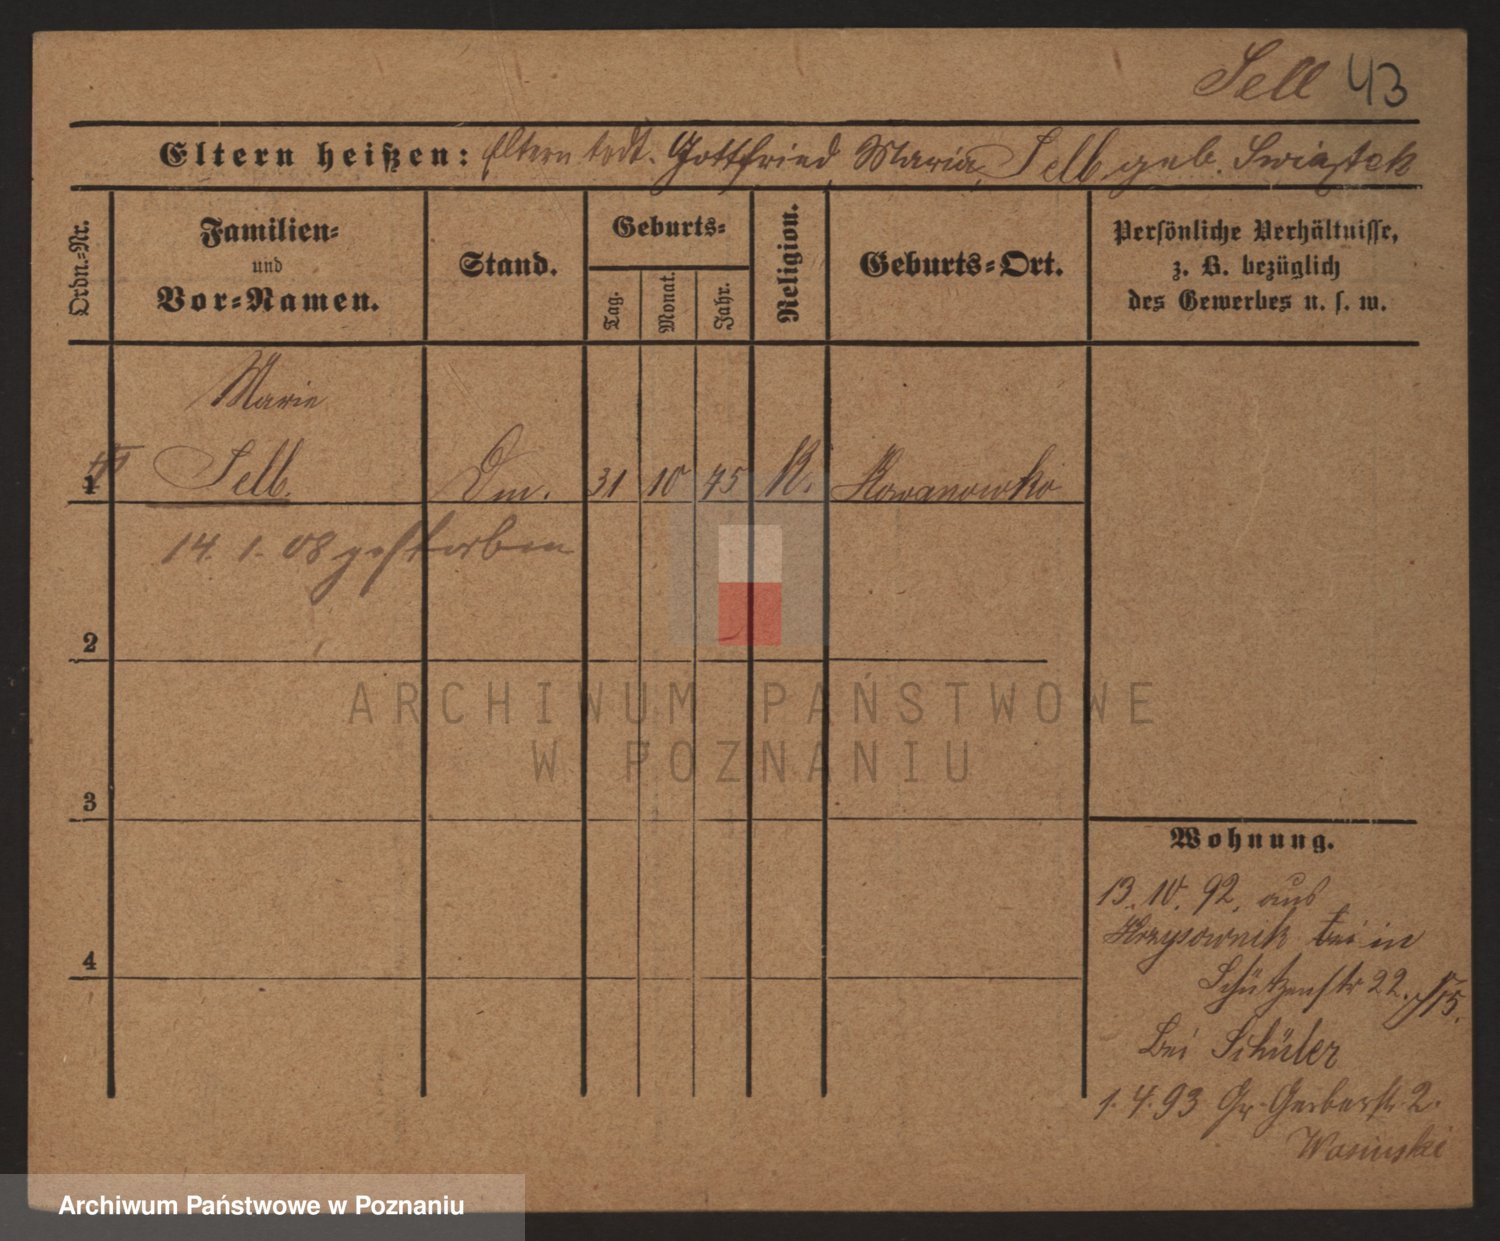 Sell 43
Eltern heißen: Eltern todt. Gottfried Maria Selb geb. Swiątek
Ordn.-Nr.
Familien-
und
Vor-Namen.
Stand.
Geburts-
Tag.
Monat.
Jahr.
Religion.
Geburts-Ort.
Persönliche Verhältnisse,
z. B. bezüglich
des Gewerbes u. s. w.
Marie
1 Selb. 31 10 45 K. Kowanowko
14. 1. 08 gestorben
2
3
4
Wohnung.
13. 10. 92. aus
in
Schützenstr 22.
Bei Schüler
1. 4. 93 Gr. Gerberstr 2.
Wosinski
ARCHIWUM PAŃSTWOWE
W POZNANIU
Archiwum Państwowe w Poznaniu